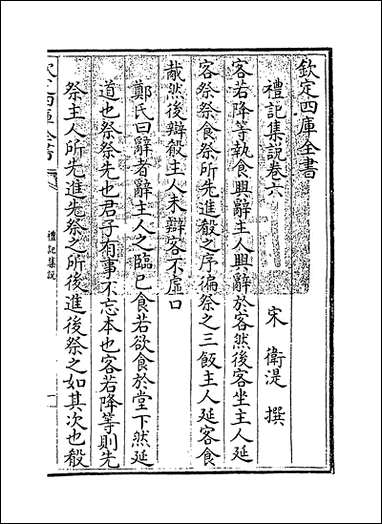 欽定四庫全書
禮記集說卷六
宋 衛湜 撰
客若降等執食興辭主人興辭於客然後客坐主人延
客祭祭食祭所先進殽之序徧祭之三飯主人延客食
胾然後辯殽主人未辯客不虛口
鄭氏曰辭者辭主人之臨已食若欲食於堂下然延
道也祭祭先也君子有事不忘本也客若降等則先
祭主人所先進先祭之所後進後祭之如其次也殽
欽定四庫全書
禮記集說
一